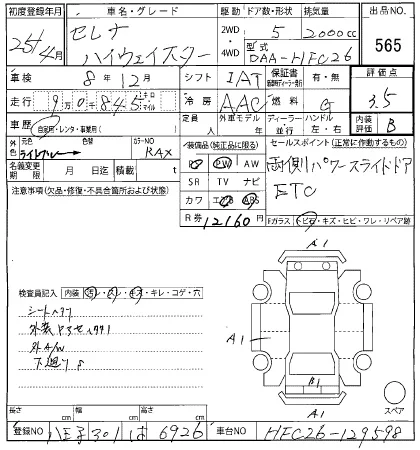 初度登録年月 車名・グレード 駆動 ドア数・形状 排気量 出品NO.
25/4月 セレナ 2WD 5 2000cc 565
ハイウェイスター 4WD 型式 DAA-HFC26
車検 8年12月 シフト IAT 保証書 有・無 評価点
走行 9万0千845 キロ マイル 冷房 AAC 燃料 G 3.5
車歴 自家用・レンタ・事業用 定員 外車モデル年 ディーラー 並行 ハンドル 左・右 内装評価 B
外色 元色 ライトブルー 色替 カラーNO RAX 装備品(純正品に限る) セールスポイント(正常に作動するもの)
名義変更期限 月 日迄 積載 t PS PW AW 両側パワースライドドア
SR TV ナビ ETC
注意事項(欠品・修復・不具合箇所および状態) カワ エアB ABS
R券 12160円 Fガラス トビ石・キズ・ヒビ・ワレ・リペア跡
A1
検査員記入 内装 汚レ・スレ・キズ・キレ・コゲ・穴
シート
外装
外A/W A1
下廻り
B1
A1
スペア
長さ cm 幅 cm 高さ cm
登録NO 八王子 301 は 6926 車台NO HFC26-129598